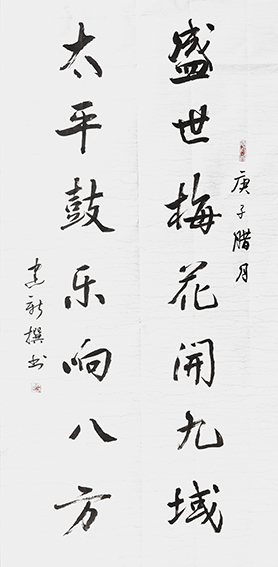 盛世梅花开九域
庚子腊月
太平鼓乐响八方
建新撰书